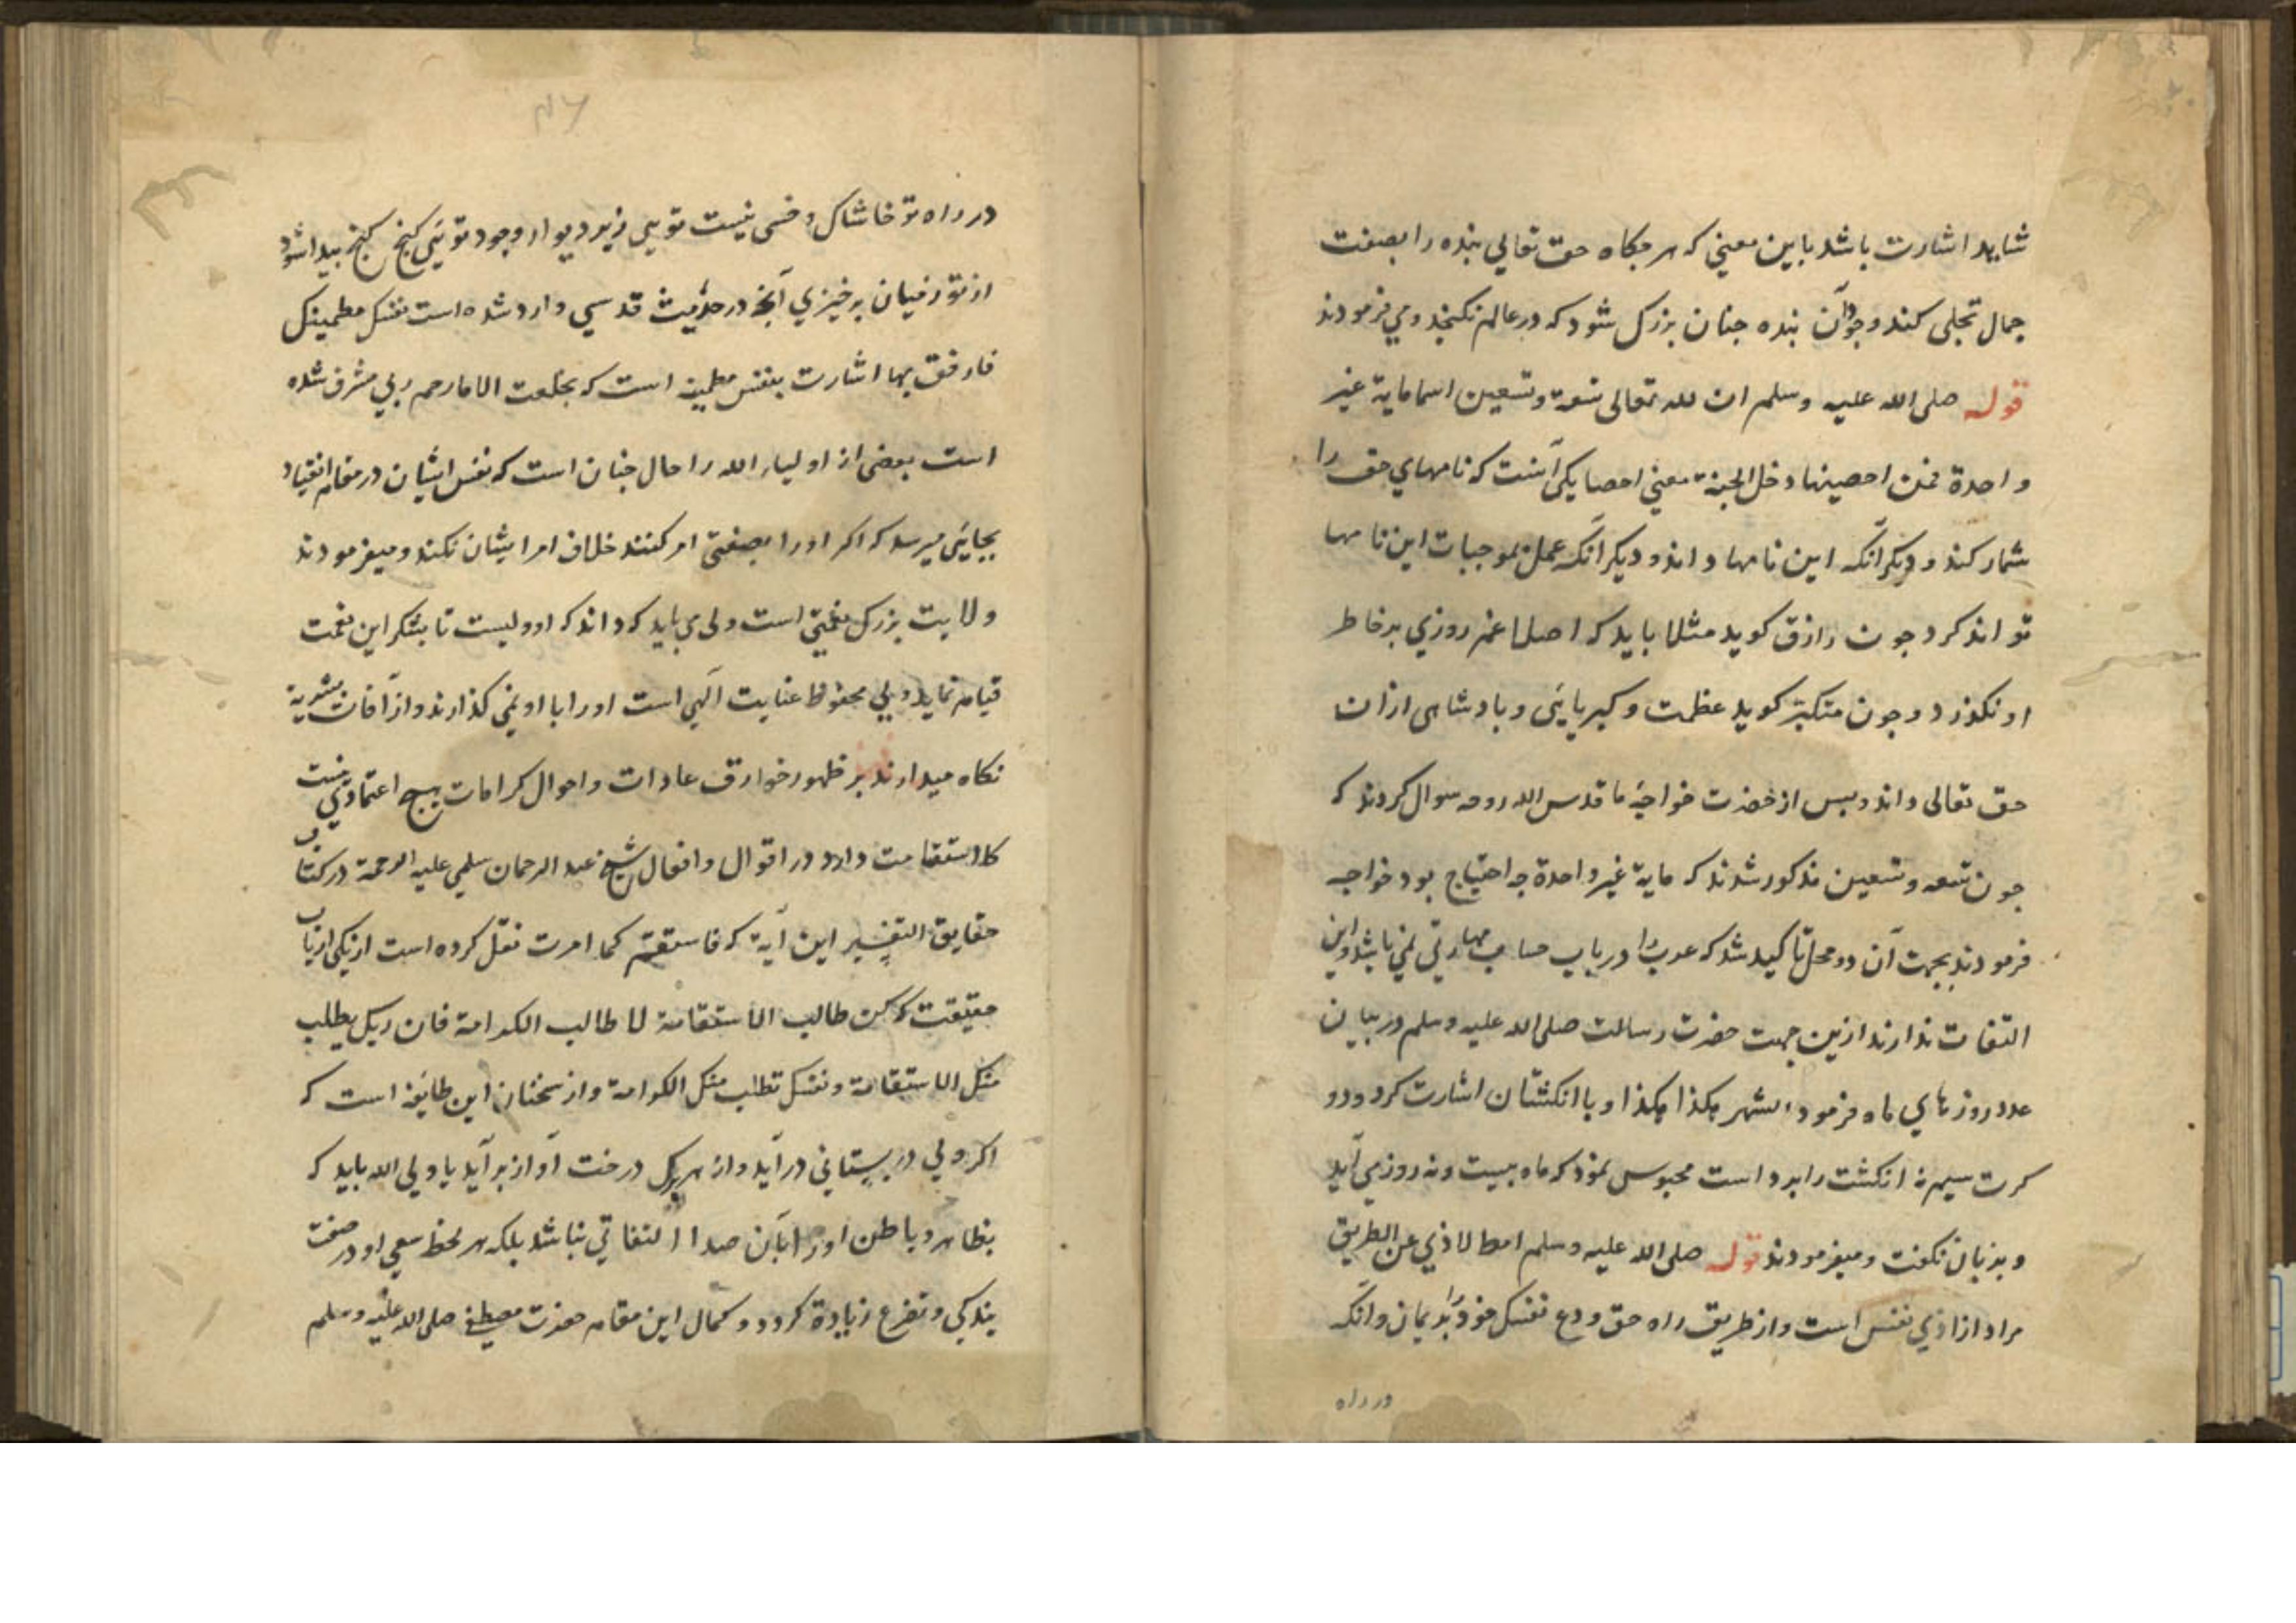 شاید اشارت باشد باین معنی که هر جکاه حق تعالی بنده را بصفت
جمال تجلی کند وجود آن بنده جنان بزرک شود که در عالم نکنجد ومی فرمودند
قوله صلی الله علیه وسلم ان لله تعالی تسعة وتسعین اسما مایة غیر
واحدة فمن احصینها دخل الجنة معنی احصا یکی آنست که نامهای حق را
شمار کند و دیکر آنکه این نامها داند و دیکر آنکه عمل بموجبات این نامها
تواند کرد جون رازق کوید مثلا باید که اصلا غم روزی بر خاطر
او نکذرد وجون متکبر کوید عظمت وکبریایی وبادشاهی ازان
حق تعالی داند وبس از حضرت خواجهٔ ما قدس الله روحه سوال کردند که
جون تسعه وتسعین مذکور شدند که مایة غیر واحدة جه احتیاج بود خواجه
فرمودند بجهت آن دو محل تاکید شد که عرب را در باب حساب مهارتی نمی باشد واین
التفات ندارند ازین جهت حضرت رسالت صلی الله علیه وسلم در بیان
عدد روزهای ماه فرمود الشهر هکذا هکذا وبا انکشتان اشارت کرد ودو
کرت سیم نه انکشت را برداشت محبوس نمود که ماه بیست ونه روز می آید
وبزبان نکفت ومیفرمودند قوله صلی الله علیه وسلم امط الاذی عن الطریق
مراد از اذی نفس است واز طریق راه حق ودع نفسک خود را بدر بمان وانکه
در راه
در راه تو خاشاک وخسی نیست تویی زیر دیوار وجود تویی کنج کنج بیدا شود
از تو زمیان برخیزی آنجه در حدیث قدسی وارد شده است نفسک مطمینک
فارفق بها اشارت بنفس مطمینه است که بخلعت الا ما رحم ربی مشرف شده
است بعضی از اولیاء الله را حال جنان است که نفس ایشان در مقام انقیاد
بجایی میرسد که اکر او را بصفتی امر کنند خلاف امر ایشان نکند ومیفرمودند
ولایت بزرک نعمتی است ولی می باید که داند که او ولیست تا بشکر این نعمت
قیام نماید ولی محفوظ عنایت الهی است او را با او نمی کذارند واز آفات بشریة
نکاه میدارند بر ظهور خوارق عادات واحوال کرامات هیج اعتمادی نیست
کار استقامت دارد در اقوال وافعال شیخ عبد الرحمان سلمی علیه الرحمة در کتاب
حقایق التفسیر این آیة که فاستقم کما امرت نقل کرده است از یکی ارباب
حقیقت که کن طالب الاستقامة لا طالب الکرامة فان ربک یطلب
منک الاستقامة ونفسک تطلب منک الکرامة واز سخنان این طایفه است که
اکر ولی در بستانی در آید واز هر یک درخت آواز بر آید یا ولی الله باید که
بظاهر وباطن او را بآن صدا التفاتی نباشد بلکه هر لحظه سعی او در صفت
بندکی وتضرع زیادة کردد وکمال این مقام حضرت مصطفی صلی الله علیه وسلم